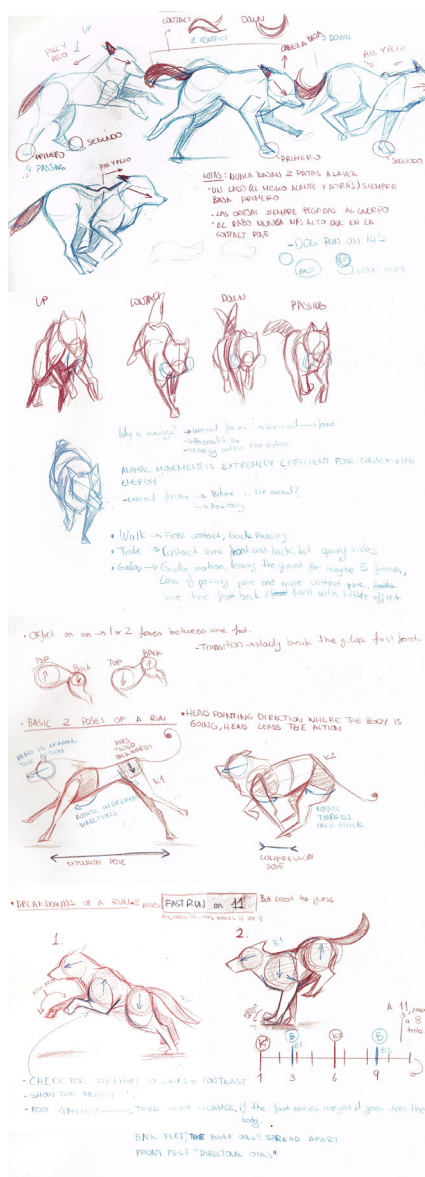 UP
CONTACT
DOWN
2 CONTACT
PIEL Y
PELO
1
CABEZA BAJA
3 DOWN
PIEL Y PELO
PRIMERO
SEGUNDO
4 PASSING
PRIMERO
SEGUNDO
PIEL Y PELO
NOTAS: NUNCA BAJAN 2 PATAS A LA VEZ
* UN LADO (EL MISMO ALANTE Y ATRÁS) SIEMPRE
BAJA PRIMERO
- LAS OREJAS SIEMPRE PEGADAS AL CUERPO
* EL RABO NUNCA MÁS ALTO QUE EN LA
CONTACT POSE
- DOG RUN ON
UP
CONTACT
DOWN
PASSING
ANIMAL MOVEMENT IS EXTREMELY EFFICIENT FOR CONSERVING
ENERGY
- External forces → Where is the animal?
→ Anatomy
• Walk → Front contact, back Passing.
• Trote → Contact same front and back, but opposite sides
• Galop → Circular motion, leaving the ground for maybe 5 frames,
Less of passing pose and more contact pose,
same time from back / front with little offset
• Offset on run → 1 or 2 frames between same foot.
- Transition → slowly break the galop first point.
TOP
BACK
TOP
BACK
- BASIC 2 POSES OF A RUN
* HEAD POINTING DIRECTION WHERE THE BODY IS
GOING, HEAD LEADS THE ACTION
HEAD IS LEADING
THE ACTION
HIPS
TILTED
BACKWARDS
K1
K2
ROTATE IN DIFFERENT
DIRECTIONS
ROTATE
TOWARDS
EACH OTHER
EXTENSION POSE
COMPRESSION
POSE
• BREAKDOWNS OF A RUN 2 POSES
FAST RUN on 11
But best to guess
RICHARD WILLIAMS MAKES IT ON 9
1.
2.
B1
A 11, pero
a 8
K1
B
K2
B
B1
B2
1
3
6
9
- CHECK FOR STRAIGHT TO CURVES = CONTRAST
- SHOW THE WEIGHT
- FOOT PLACEMENT → THINK ABOUT BALANCE, if the foot carries weight it goes under the
body.
BACK FEET, THE REAR ONES SPREAD APART
FRONT FEET "DIRECTIONAL ONES"